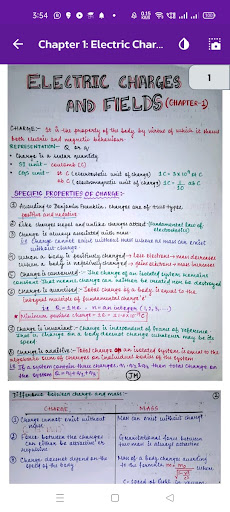 3:54
Chapter 1: Electric Char...
1
ELECTRIC CHARGES
AND FIELDS (CHAPTER-1)
CHARGE:- It is the property of the body by virtue of which it shows
both electric and magnetic behaviour.
REPRESENTATION:- Q or q
• Charge is a scalar quantity
• SI unit - coulomb (C)
• CGS unit - st C (electrostatic unit of charge) 1C = 3×10⁹ st C
ab C (electromagnetic unit of charge) 1C = 1/10 ab C
SPECIFIC PROPERTIES OF CHARGE:-
According to Benjamin Franklin, charges are of two types
positive and negative
Like charges repel and unlike charges attract (fundamental law of
electrostatics)
Charge is always associated with mass
i.e Charge cannot exist without mass where as mass can exist
without charge
When a body is positively charged → lose electron → mass decreases
When a body is negatively charged → gain electron → mass increases
Charge is conserved:- The charge of an isolated system remains
constant. That means charge can neither be created nor be destroyed
Charge is quantised:- Total charge of a body is equal to the
integral multiple of fundamental charge 'e'
i.e Q = ±ne n = an integer (1, 2, 3, ...)
Charge is invariant:- Charge is independent of frame of reference
that is charge on a body doesnot change whatever may be its
speed
Charge is additive:- Total charge on an isolated system is equal to the
algebraic sum of charges on individual bodies of the system
If a system contains three charges, q₁, q₂, q₃ then total charge on
the system Q = q₁ + q₂ + q₃
Difference between charge and mass:-
2
CHARGE MASS
① Charge cannot exist without
mass
Mass can exist without charge
② Force between the charges
can either be attractive or
repulsive
Gravitational force between
two mass is always attractive
③ Charge doesnot depend on the
speed of the body
Mass of a body changes according
to the formula
where